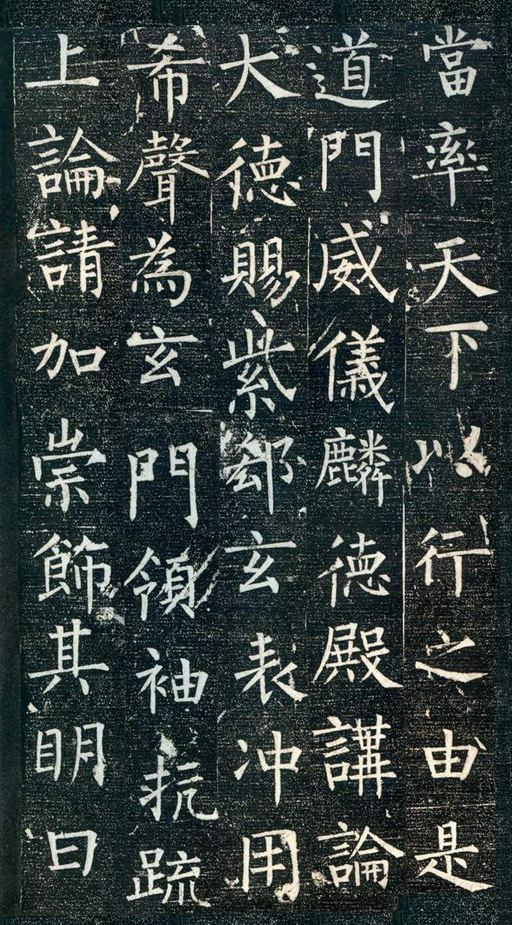 當率天下以行之由是
道門威儀麟德殿講論
大德賜紫郄玄表冲用
希聲為玄門領袖抗疏
上論請加崇飾其眀日